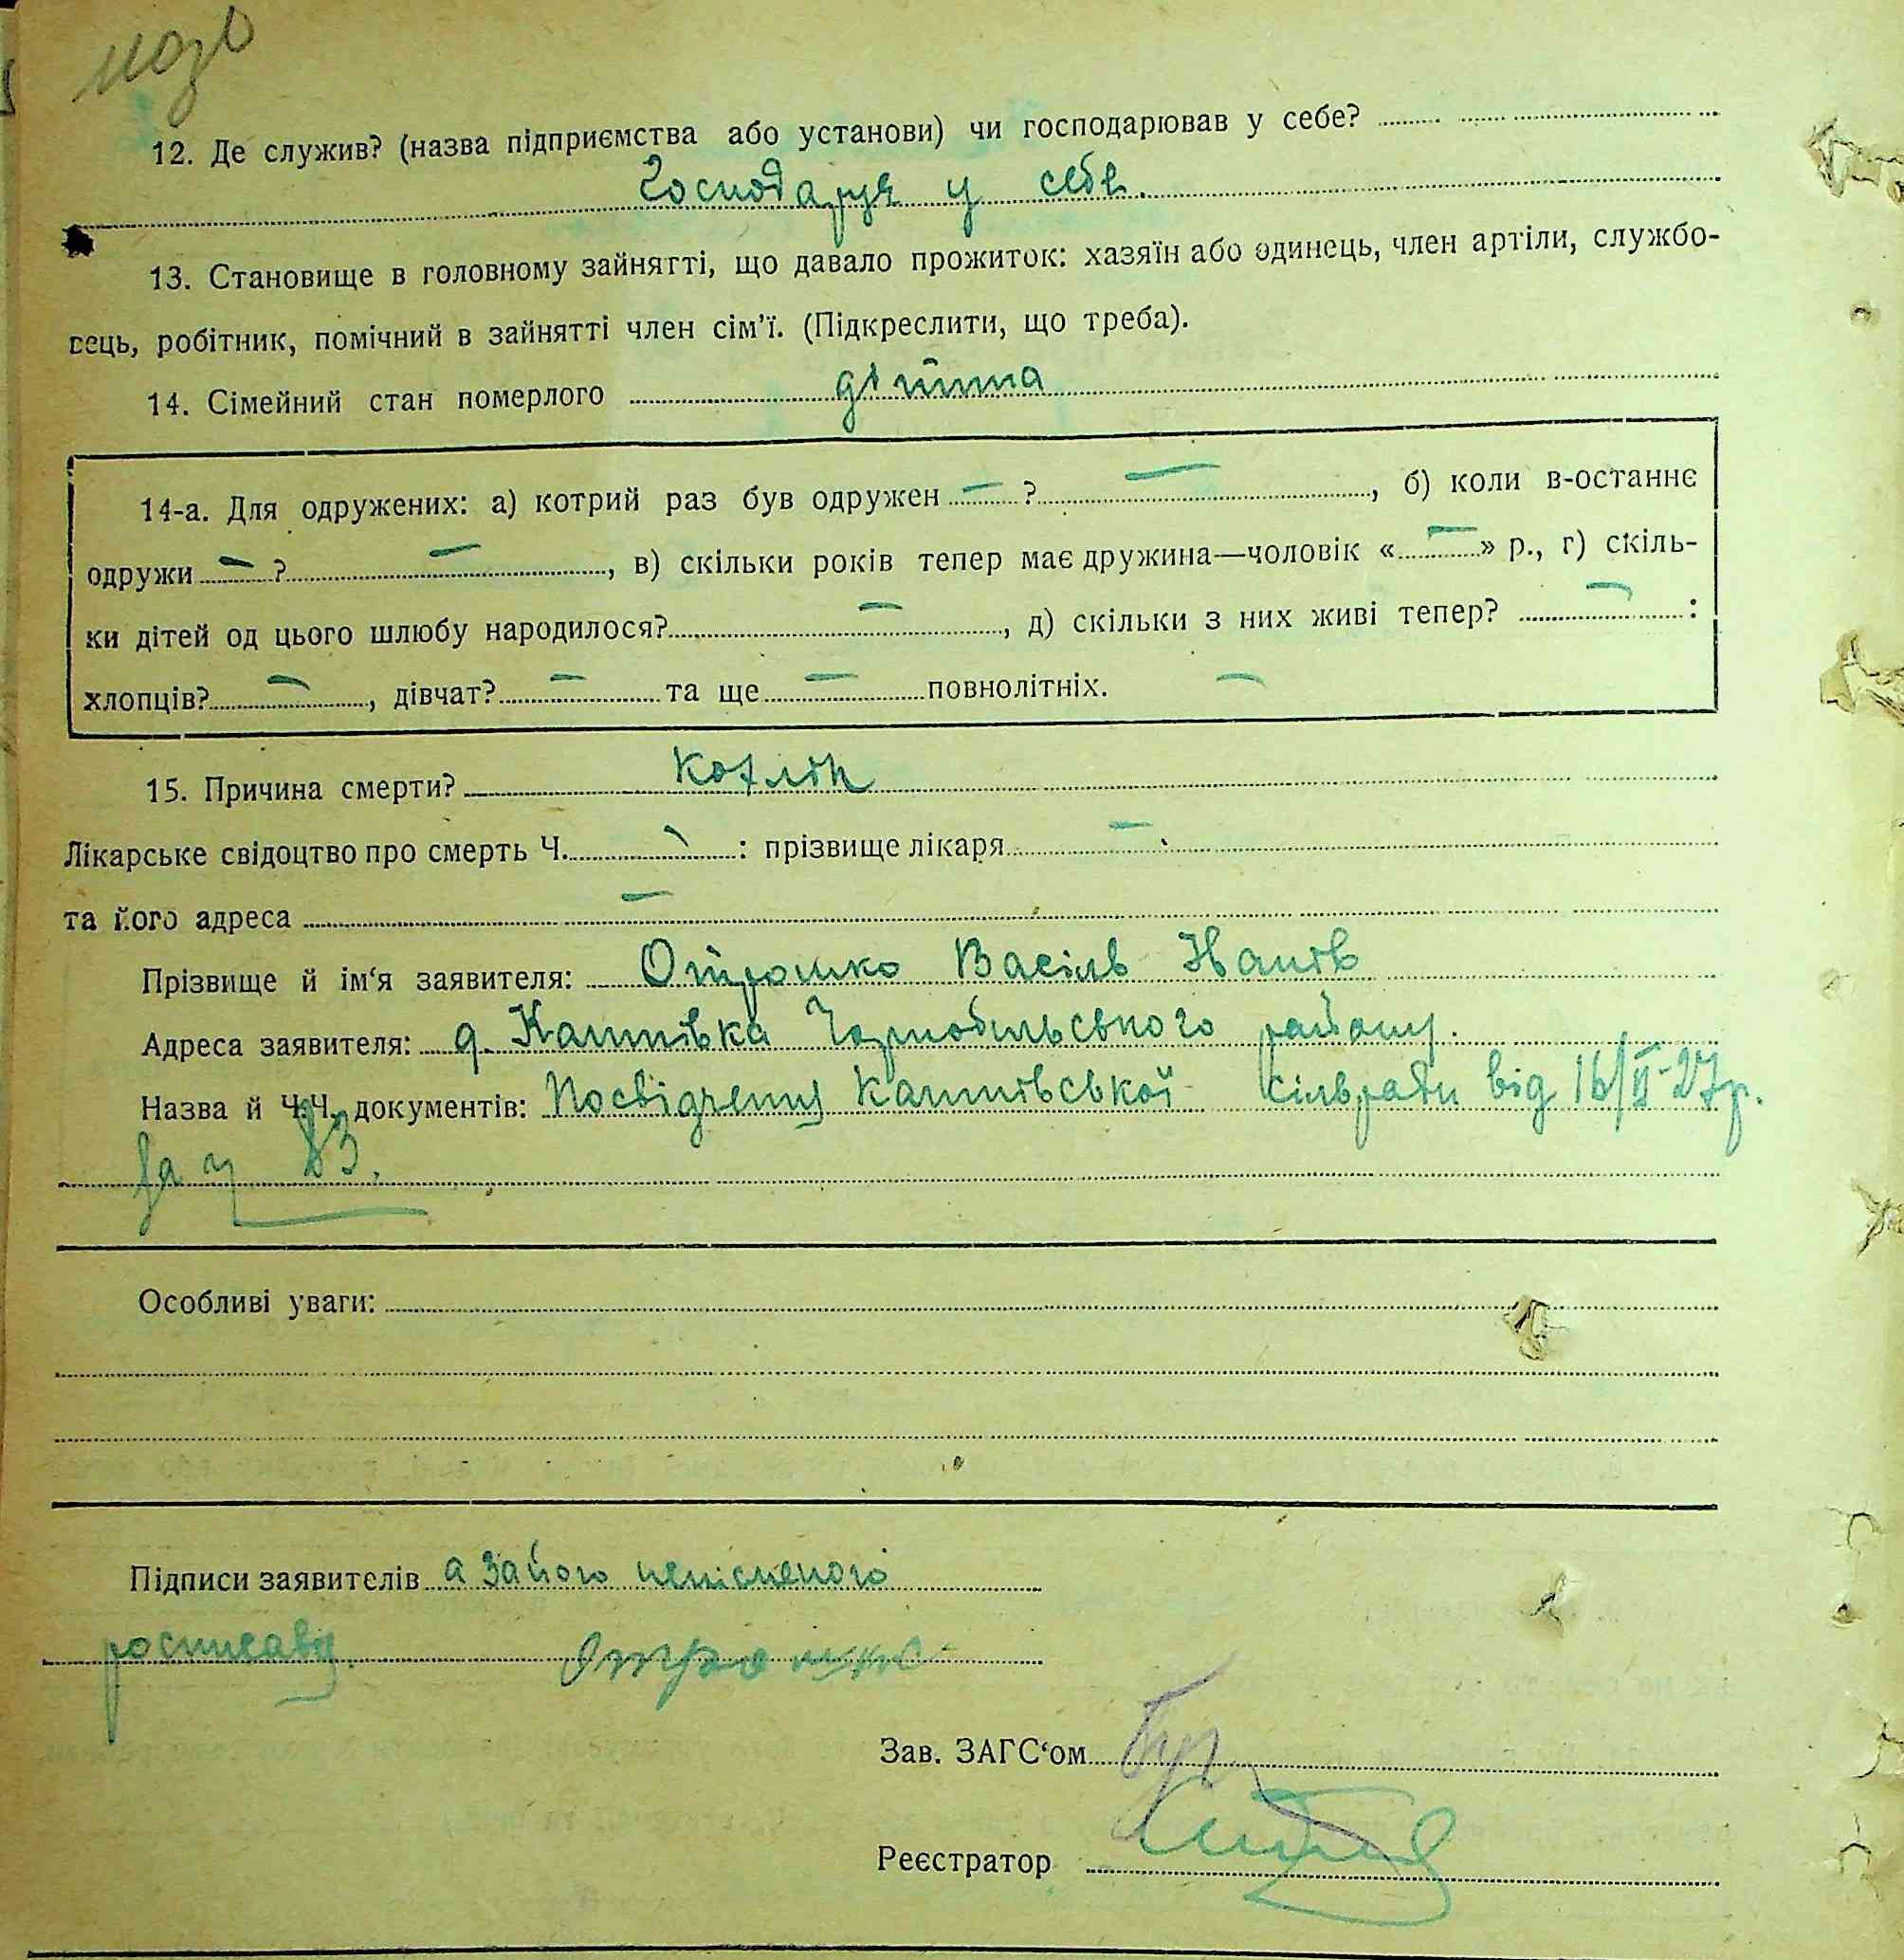 12. Де служив? (назва підприємства або установи) чи господарював у себе?
Господарує у себе.
13. Становище в головному зайнятті, що давало прожиток: хазяїн або одинець, член артіли, службо-
вець, робітник, помічний в зайнятті член сім'ї. (Підкреслити, що треба).
14. Сімейний стан померлого дітина
14-а. Для одружених: а) котрий раз був одружен — ? —, б) коли в-останнє
одружи — ? —, в) скільки років тепер має дружина—чоловік «—» р., г) скіль-
ки дітей од цього шлюбу народилося? —, д) скільки з них живі тепер? — :
хлопців? —, дівчат? — та ще — повнолітніх. —
15. Причина смерти? Кашль
Лікарське свідоцтво про смерть Ч. — : прізвище лікаря —
та його адреса —
Прізвище й ім'я заявителя: Отрошко Василь
Адреса заявителя: Чорнобильського району.
Назва й Ч.Ч. документів: Посвідчення сільради від 16/II-27р.
за ч 83.
Особливі уваги:
Підписи заявителів а за його неписьменого
росписавсь Отрошко
Зав. ЗАГС'ом
Реєстратор